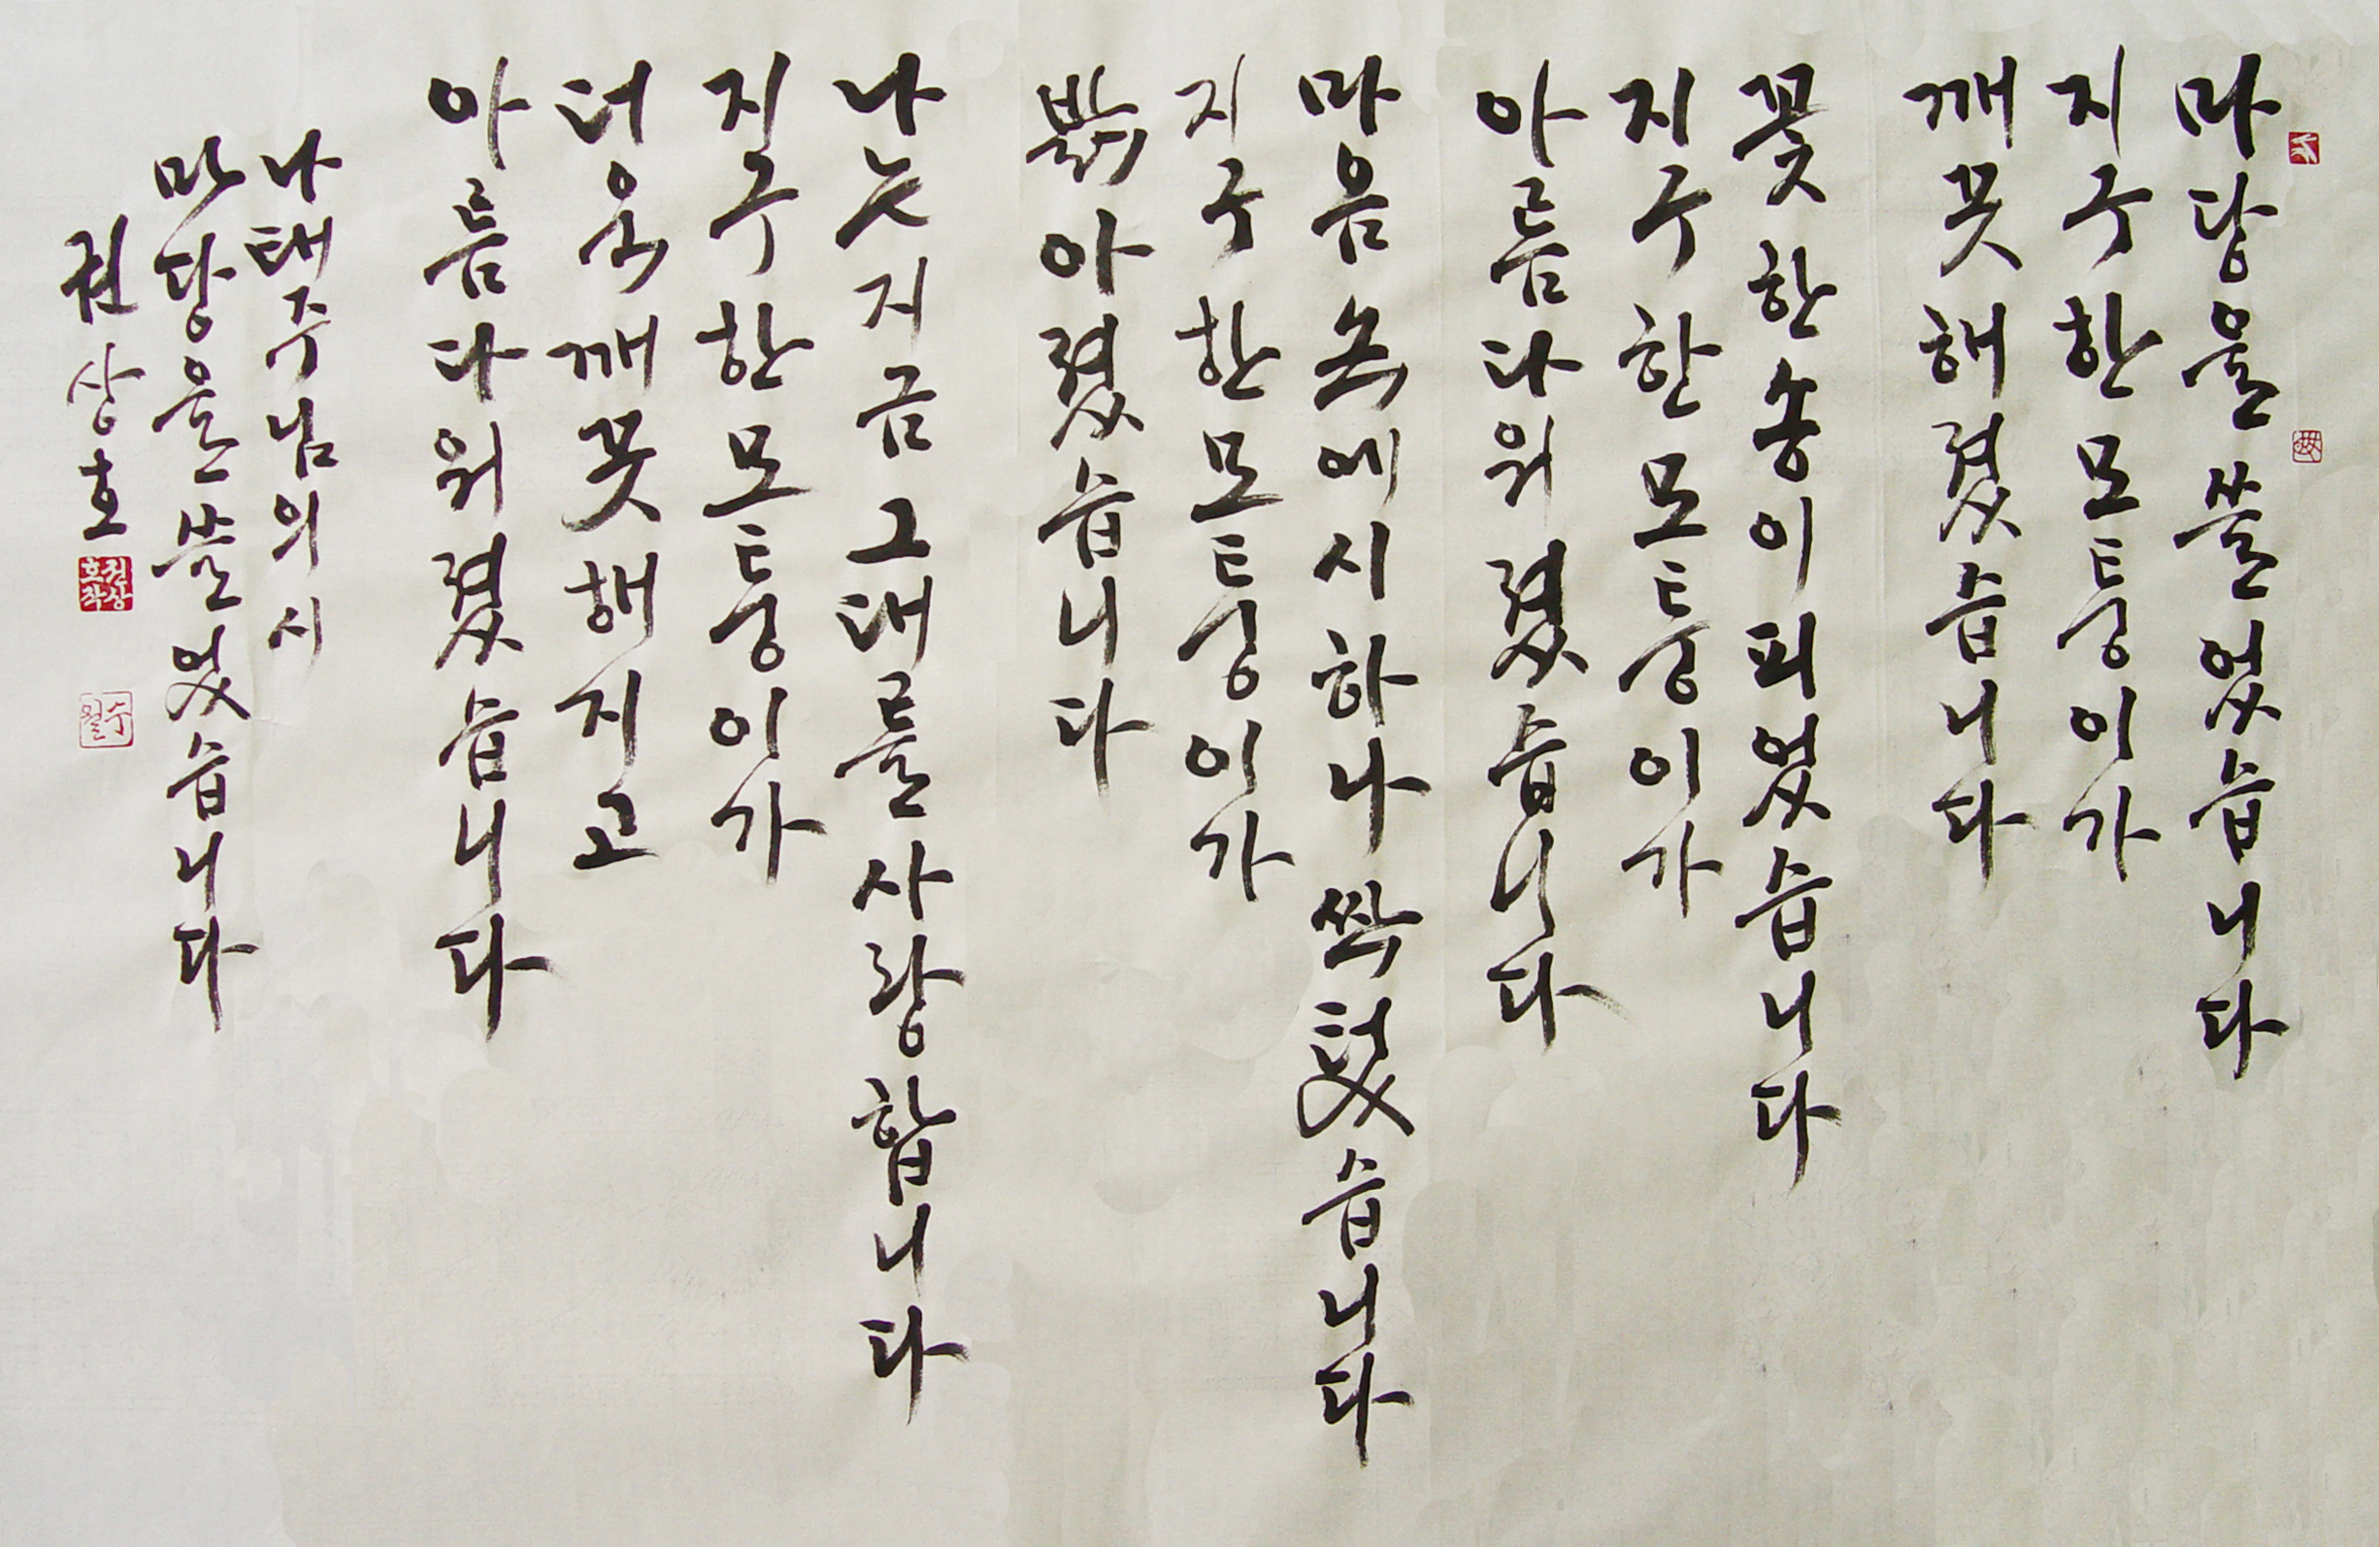 마당을 쓸었습니다
지구 한 모퉁이가
깨끗해졌습니다
꽃 한 송이 피었습니다
지구 한 모퉁이가
아름다워졌습니다
마음 속에 시 하나 싹텄습니다
지구 한 모퉁이가
밝아졌습니다
나는 지금 그대를 사랑합니다
지구 한 모퉁이가
더욱 깨끗해지고
아름다워졌습니다
나태주님의 시
마당을 쓸었습니다
권상호
권상호작